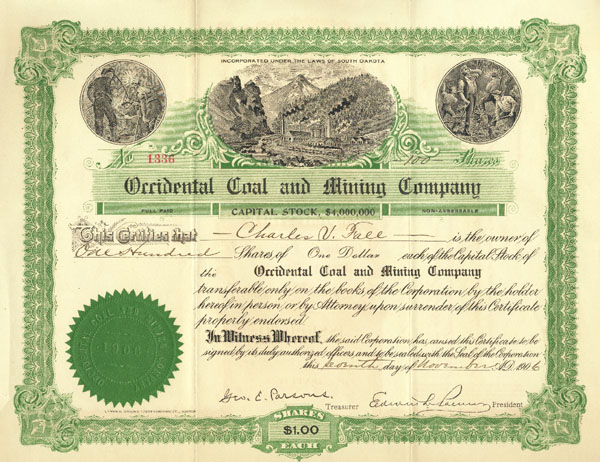 INCORPORATED UNDER THE LAWS OF SOUTH DAKOTA
No 1336 100 Shares
Occidental Coal and Mining Company
FULL PAID CAPITAL STOCK, $4,000,000 NON-ASSESSABLE
This Certifies that Charles V. Fall is the owner of
One Hundred Shares of One Dollar each of the Capital Stock of
the Occidental Coal and Mining Company
transferable only on the books of the Corporation by the holder
hereof in person or by Attorney upon surrender of this Certificate
properly endorsed.
In Witness Whereof, the said Corporation has caused this Certificate to be
signed by its duly authorized officers and to be sealed with the Seal of the Corporation
this day of November A.D. 1906
Geo. E. Parsons Treasurer Edwin President
SHARES
$1.00
EACH